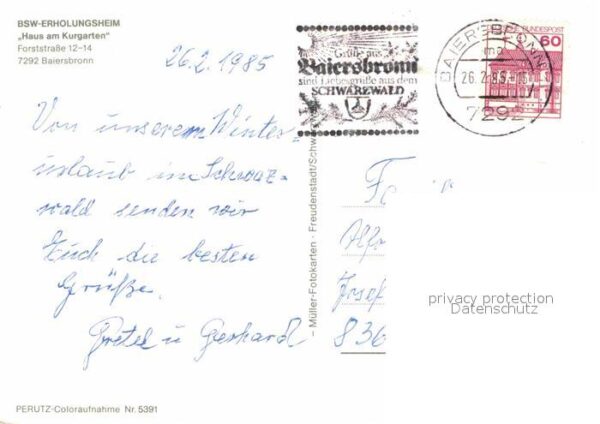 BSW-ERHOLUNGSHEIM
„Haus am Kurgarten"
Forststraße 12-14
7292 Baiersbronn
26.2.1985
Von unserem Winter=
urlaub im Schwarz=
wald senden wir
Euch die besten
Grüße.
Gretel u Gerhard
PERUTZ-Coloraufnahme Nr. 5391
Müller-Fotokarten · Freudenstadt/Schw
Grüße aus
Baiersbronn
sind Liebesgrüße aus dem
SCHWARZWALD
BAIERSBRONN
ma
26.2.85-15
7292
BUNDESPOST
60
Fe
Alfo
Josef
836
privacy protection
Datenschutz